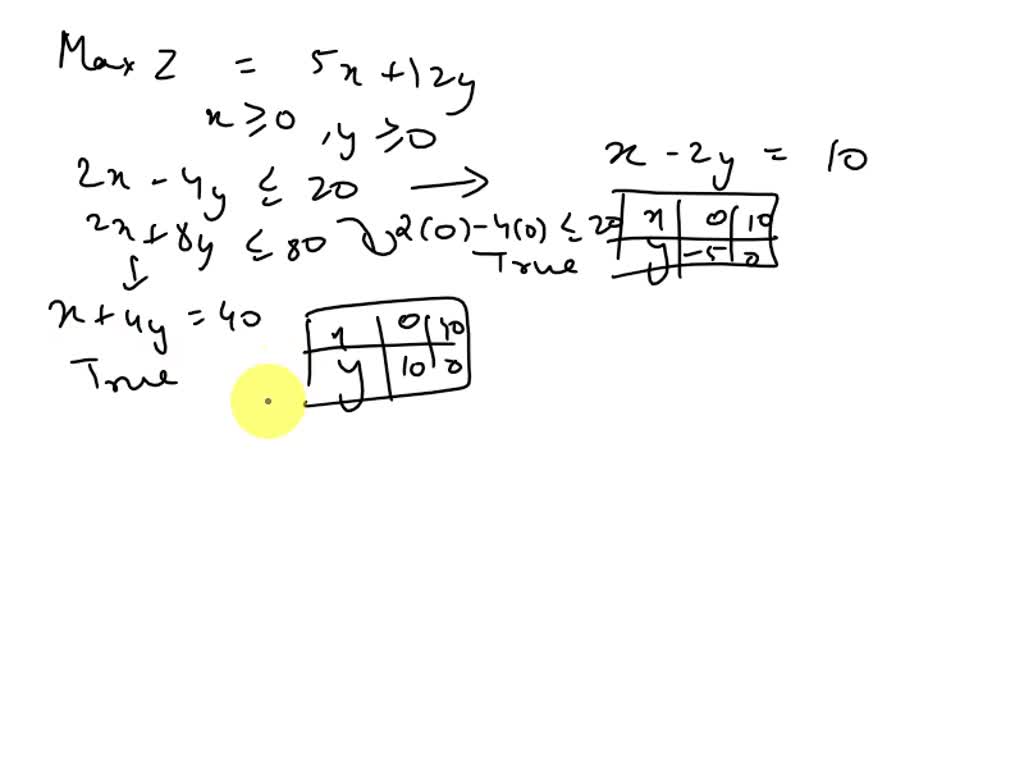 Max Z = 5x + 12y
x ≥ 0 , y ≥ 0
2x - 4y ≤ 20 → x - 2y = 10
2x + 8y ≤ 80 2(0) - 4(0) ≤ 20
True
x 0 10
y -5 0
x + 4y = 40
True
x 0 40
y 10 0